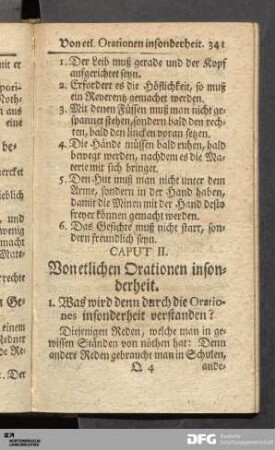 Von etl. Orationen insonderheit. 341
1. Der Leib muß gerade und der Kopf
aufgerichtet seyn.
2. Erfordert es die Höflichkeit, so muß
ein Reverentz gemachet werden.
3. Mit denen Füssen muß man nicht ge-
spannet stehen, sondern bald den rech-
ten, bald den lincken voran setzen.
4. Die Hände müssen bald ruhen, bald
bewegt werden, nachdem es die Ma-
terie mit sich bringet.
5. Den Hut muß man nicht unter dem
Arme, sondern in der Hand haben,
damit die Minen mit der Hand desto
freyer können gemacht werden.
6. Das Gesichte muß nicht starr, son-
dern freundlich seyn.
CAPUT II.
Von etlichen Orationen inson-
derheit.
1. Was wird denn durch die Oratio-
nes insonderheit verstanden?
Diejenigen Reden, welche man in ge-
wissen Ständen von nöthen hat: Denn
andere Reden gebraucht man in Schulen,
Q 4 ande-
mit er
pori-
Noth-
n aus
eine
be-
ercket
ieblich
, und
wenig
macht
Mate-
rrechte
n Ge-
einem
Redner
de Re-
. Der
DFG
Deutsche
Forschungsgemeinschaft